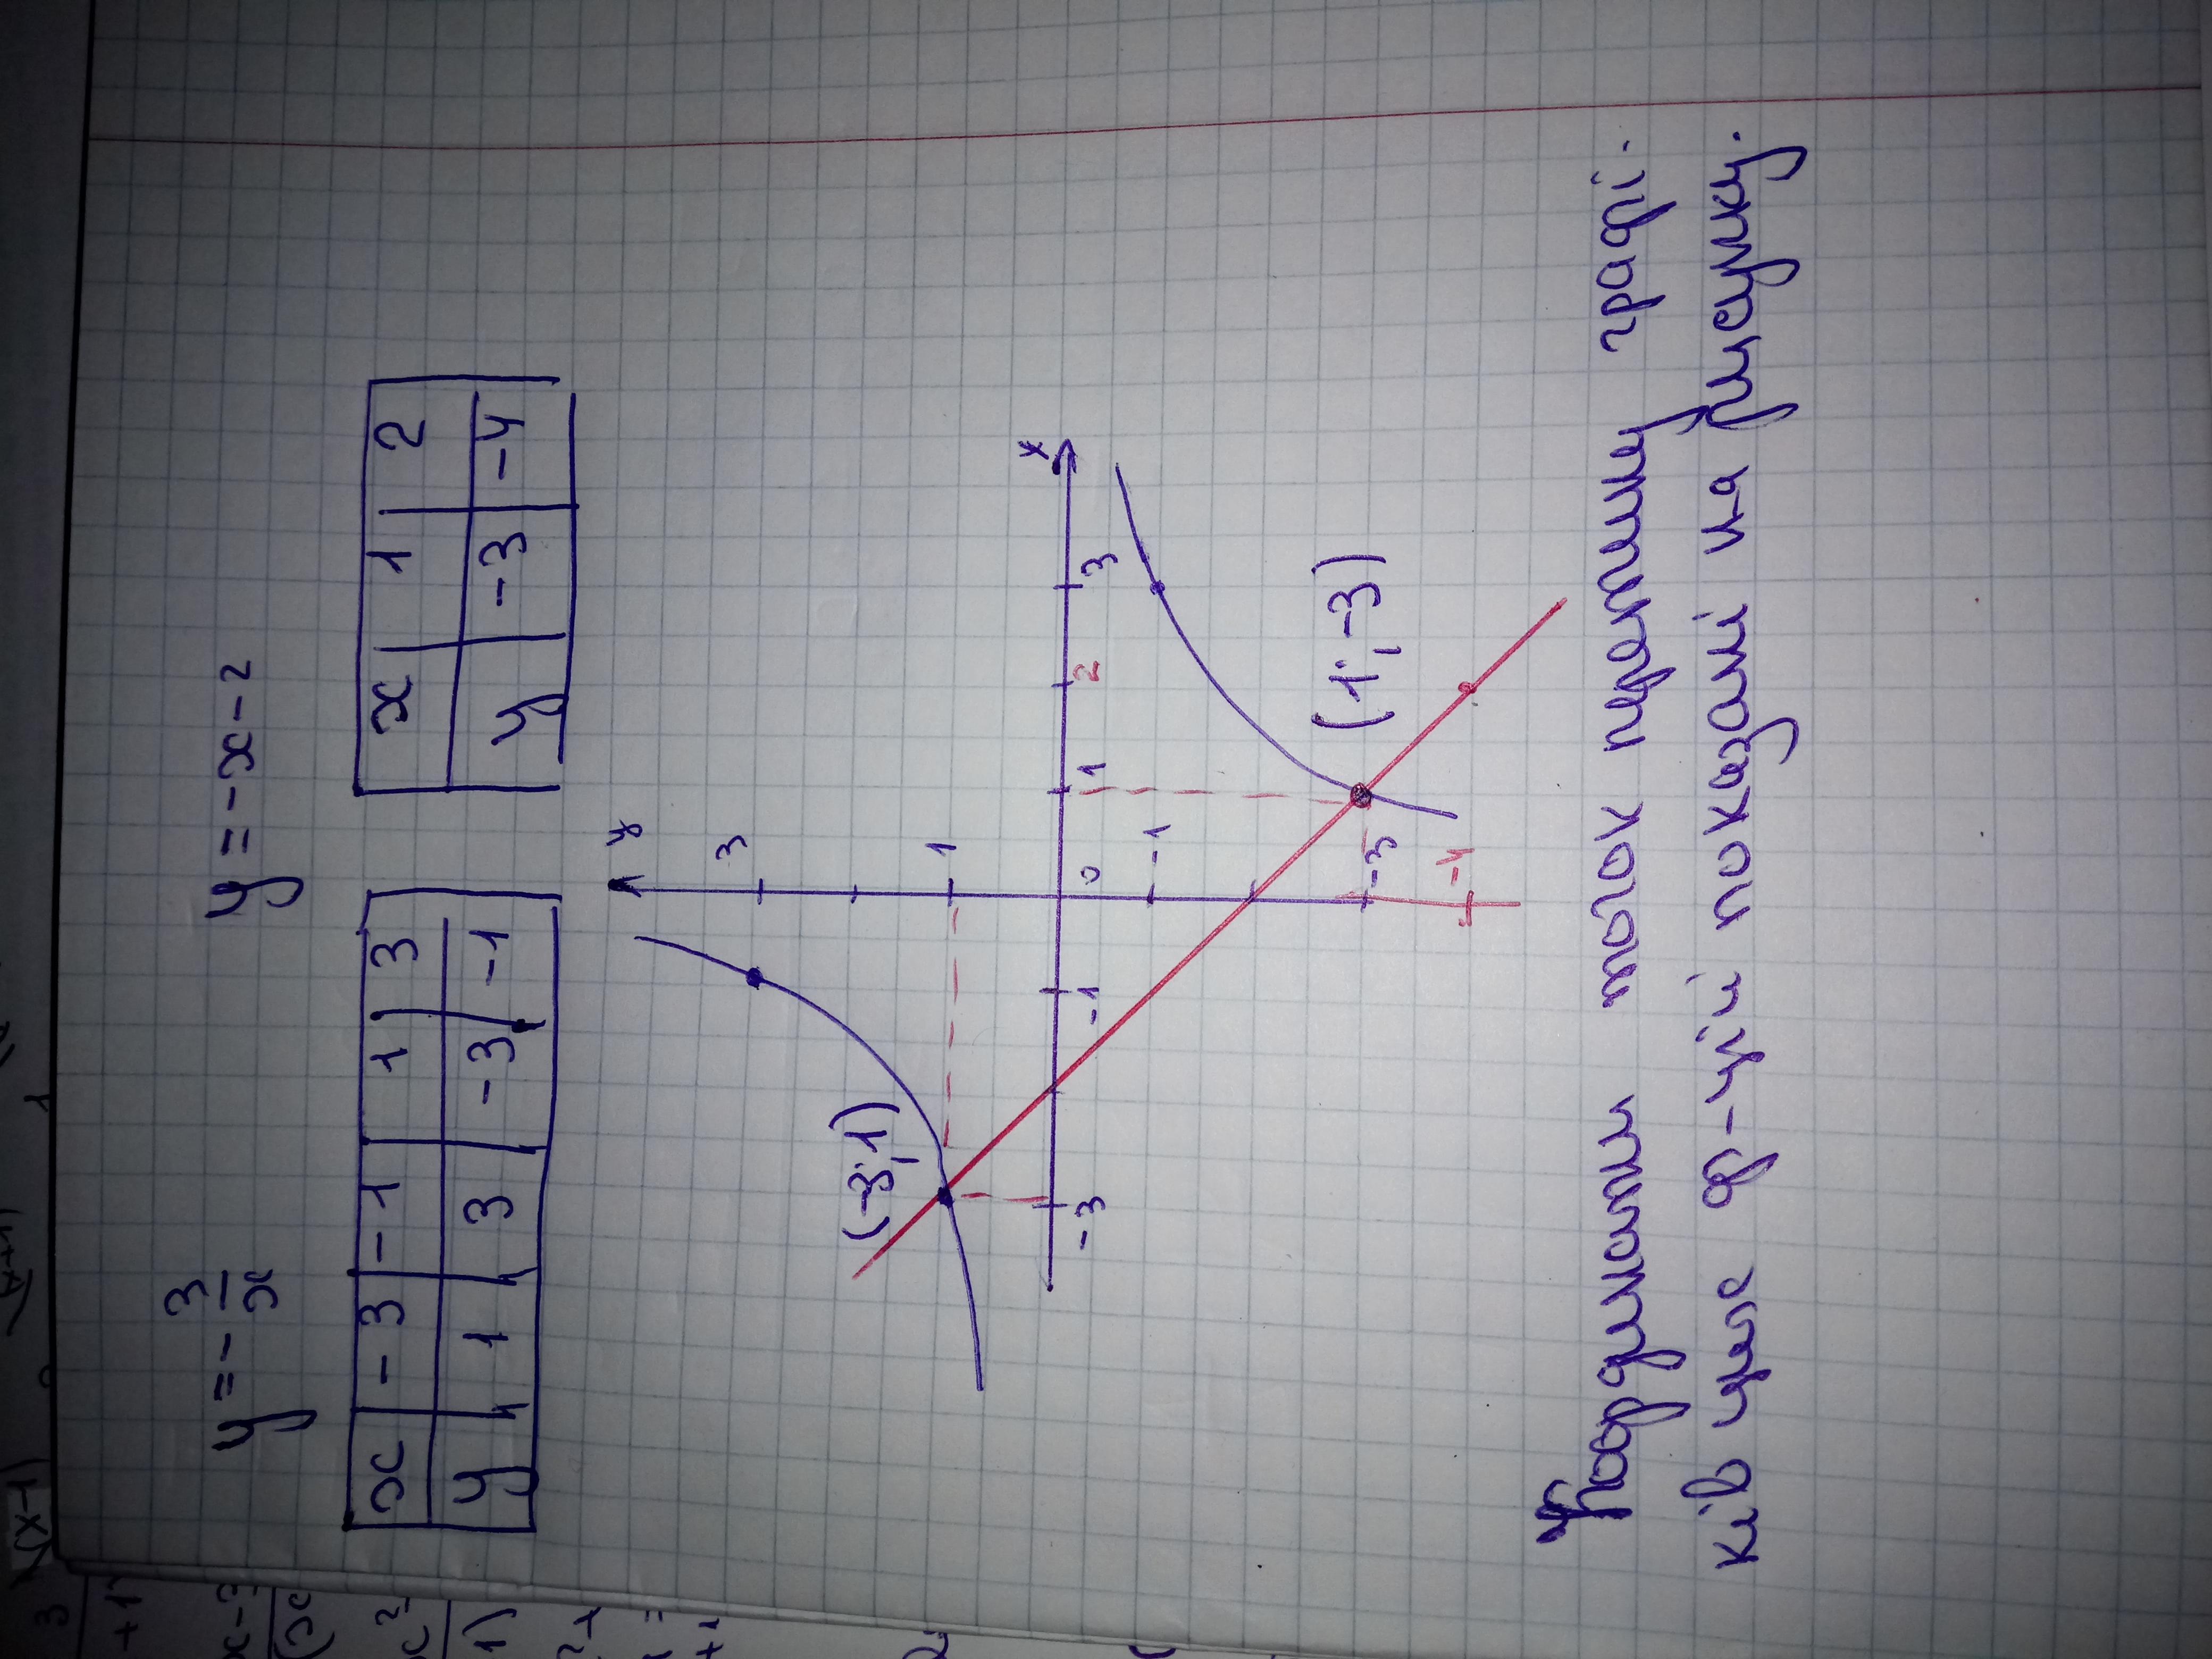 y = -3/x
y = -x - 2
x | -3 | -1 | 1 | 3
y | 1 | 3 | -3 | -1
x | 1 | 2
y | -3 | -4
y
3
1
(-3;1)
-3
-1
0
1
2
3
x
-1
-3
-4
(1;-3)
Координати точок перетину графі-
ків цих ф-цій показані на рисунку.